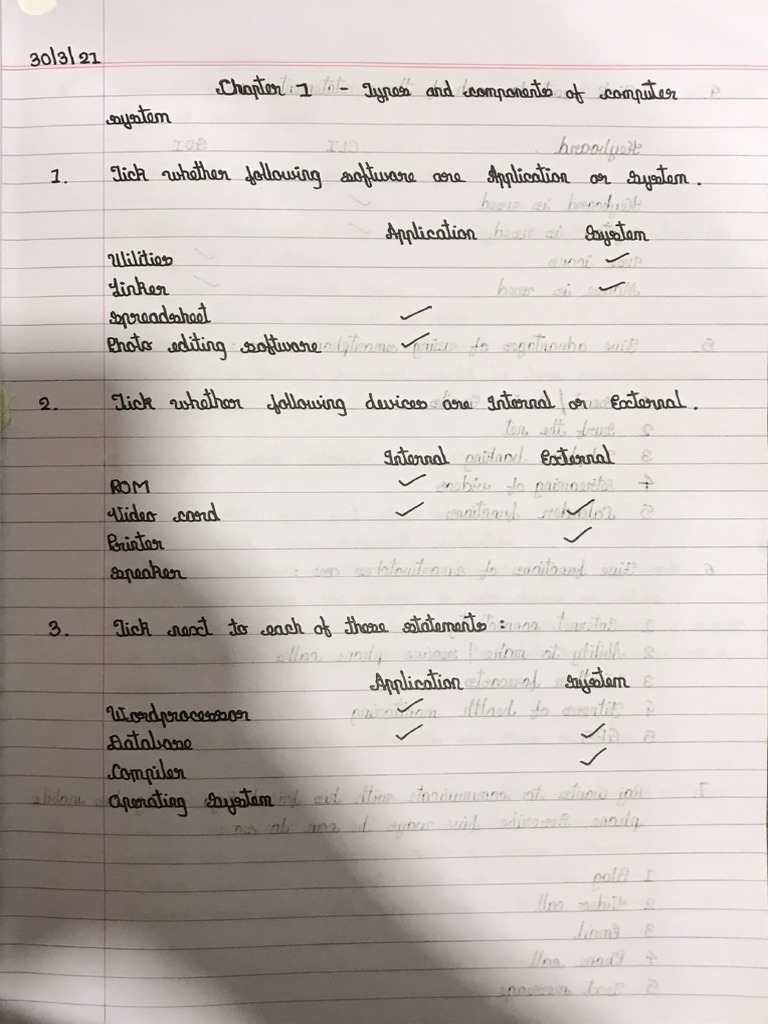 30/3/21
Chapter 1 - Types and components of computer
system
1. Tick whether following software are Application or System.
Application System
Utilities ✓
Linker ✓
Spreadsheet ✓
Photo editing software ✓
2. Tick whether following devices are Internal or External.
Internal External
ROM ✓
Video card ✓ ✓
Printer ✓
Speaker
3. Tick next to each of those statements:
Application System
Wordprocessor ✓
Database ✓ ✓
Compiler ✓
Operating System